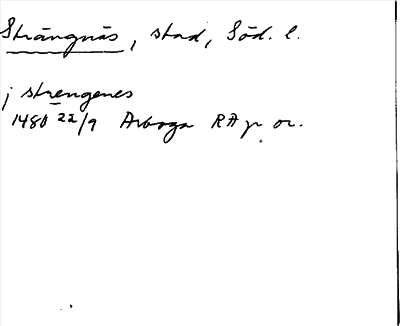 Strängnäs, stad, Söd. l.
j strengenes
1480 22/9 Arboga RAp or.